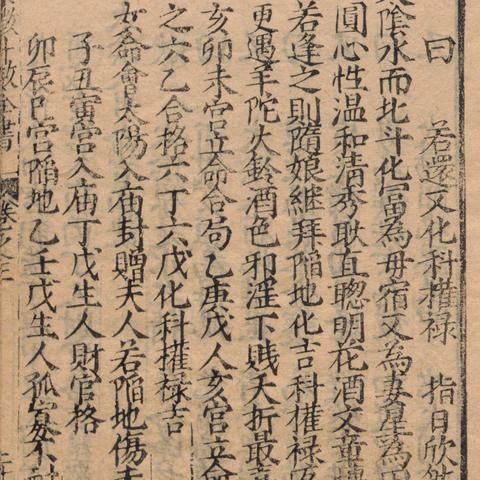 曰　若還又化科權祿　指日欣然
陰水而北斗化富為母宿又為妻星為
圓心性温和清秀耿直聰明花酒文章
若逢之則隨娘継拜陥地化吉科權禄
更遇羊陀火鈴酒色邪淫下賎夭折最
亥卯未宮立命合局乙庚戊人亥宮立命
之六乙合格六丁六戊化科權禄吉
女命會太陽入庙封贈夫人若陥地傷夫
子丑寅宮入庙丁戊生人財官格
卯辰巳宮陥地乙壬戊生人孤寡不
數全書　卷之三